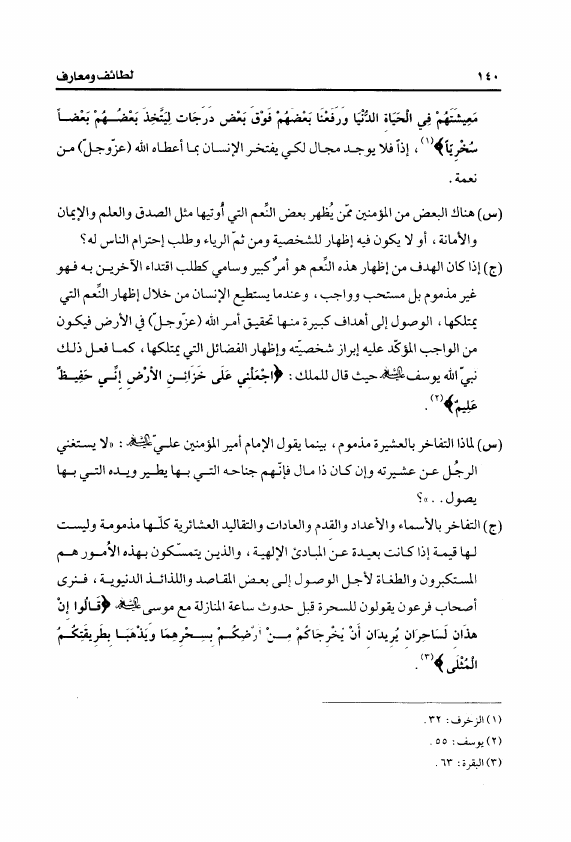 ١٤٠ لطائف ومعارف
مَعِيشَتَهُمْ فِي الْحَيَاةِ الدُّنْيَا وَرَفَعْنَا بَعْضَهُمْ فَوْقَ بَعْضٍ دَرَجَاتٍ لِيَتَّخِذَ بَعْضُـهُمْ بَعْضـاً
سُخْرِيّاً﴾(١)، إذاً فلا يوجد مجال لكي يفتخر الإنسان بما أعطاه الله (عزّوجلّ) من
نعمة.
(س) هناك البعض من المؤمنين ممّن يُظهر بعض النِّعم التي أوتيها مثل الصدق والعلم والإيمان
والأمانة، أو لا يكون فيه إظهار للشخصية ومن ثمّ الرياء وطلب إحترام الناس له؟
(ج) إذا كان الهدف من إظهار هذه النِّعم هو أمرٌ كبير وسامي كطلب اقتداء الآخرين به فهو
غير مذموم بل مستحب وواجب، وعندما يستطيع الإنسان من خلال إظهار النِّعم التي
يمتلكها، الوصول إلى أهداف كبيرة منها تحقيق أمر الله (عزّوجلّ) في الأرض فيكون
من الواجب المؤكّد عليه إبراز شخصيّته وإظهار الفضائل التي يمتلكها، كما فعل ذلك
نبيّ الله يوسف حيث قال للملك: ﴿اجْعَلْنِي عَلَى خَزَائِنِ الأَرْضِ إِنِّي حَفِيظٌ
عَلِيمٌ﴾(٢).
(س) لماذا التفاخر بالعشيرة مذموم، بينما يقول الإمام أمير المؤمنين عليّ : «لا يستغني
الرجُل عن عشيرته وإن كان ذا مال فإنّهم جناحه التي بها يطير ويده التي بها
يصول..»؟
(ج) التفاخر بالأسماء والأعداد والقدم والعادات والتقاليد العشائرية كلّها مذمومة وليست
لها قيمة إذا كانت بعيدة عن المبادئ الإلهية، والذين يتمسّكون بهذه الأمور هم
المستكبرون والطغاة لأجل الوصول إلى بعض المقاصد واللذائذ الدنيوية، فنرى
أصحاب فرعون يقولون للسحرة قبل حدوث ساعة المنازلة مع موسى ﴿قَالُوا إِنْ
هذَانِ لَسَاحِرَانِ يُرِيدَانِ أَنْ يُخْرِجَاكُمْ مِنْ أَرْضِكُمْ بِسِحْرِهِمَا وَيَذْهَبَا بِطَرِيقَتِكُمُ
الْمُثْلَى﴾(٣).
(١) الزخرف: ٣٢.
(٢) يوسف: ٥٥.
(٣) البقرة: ٦٣.